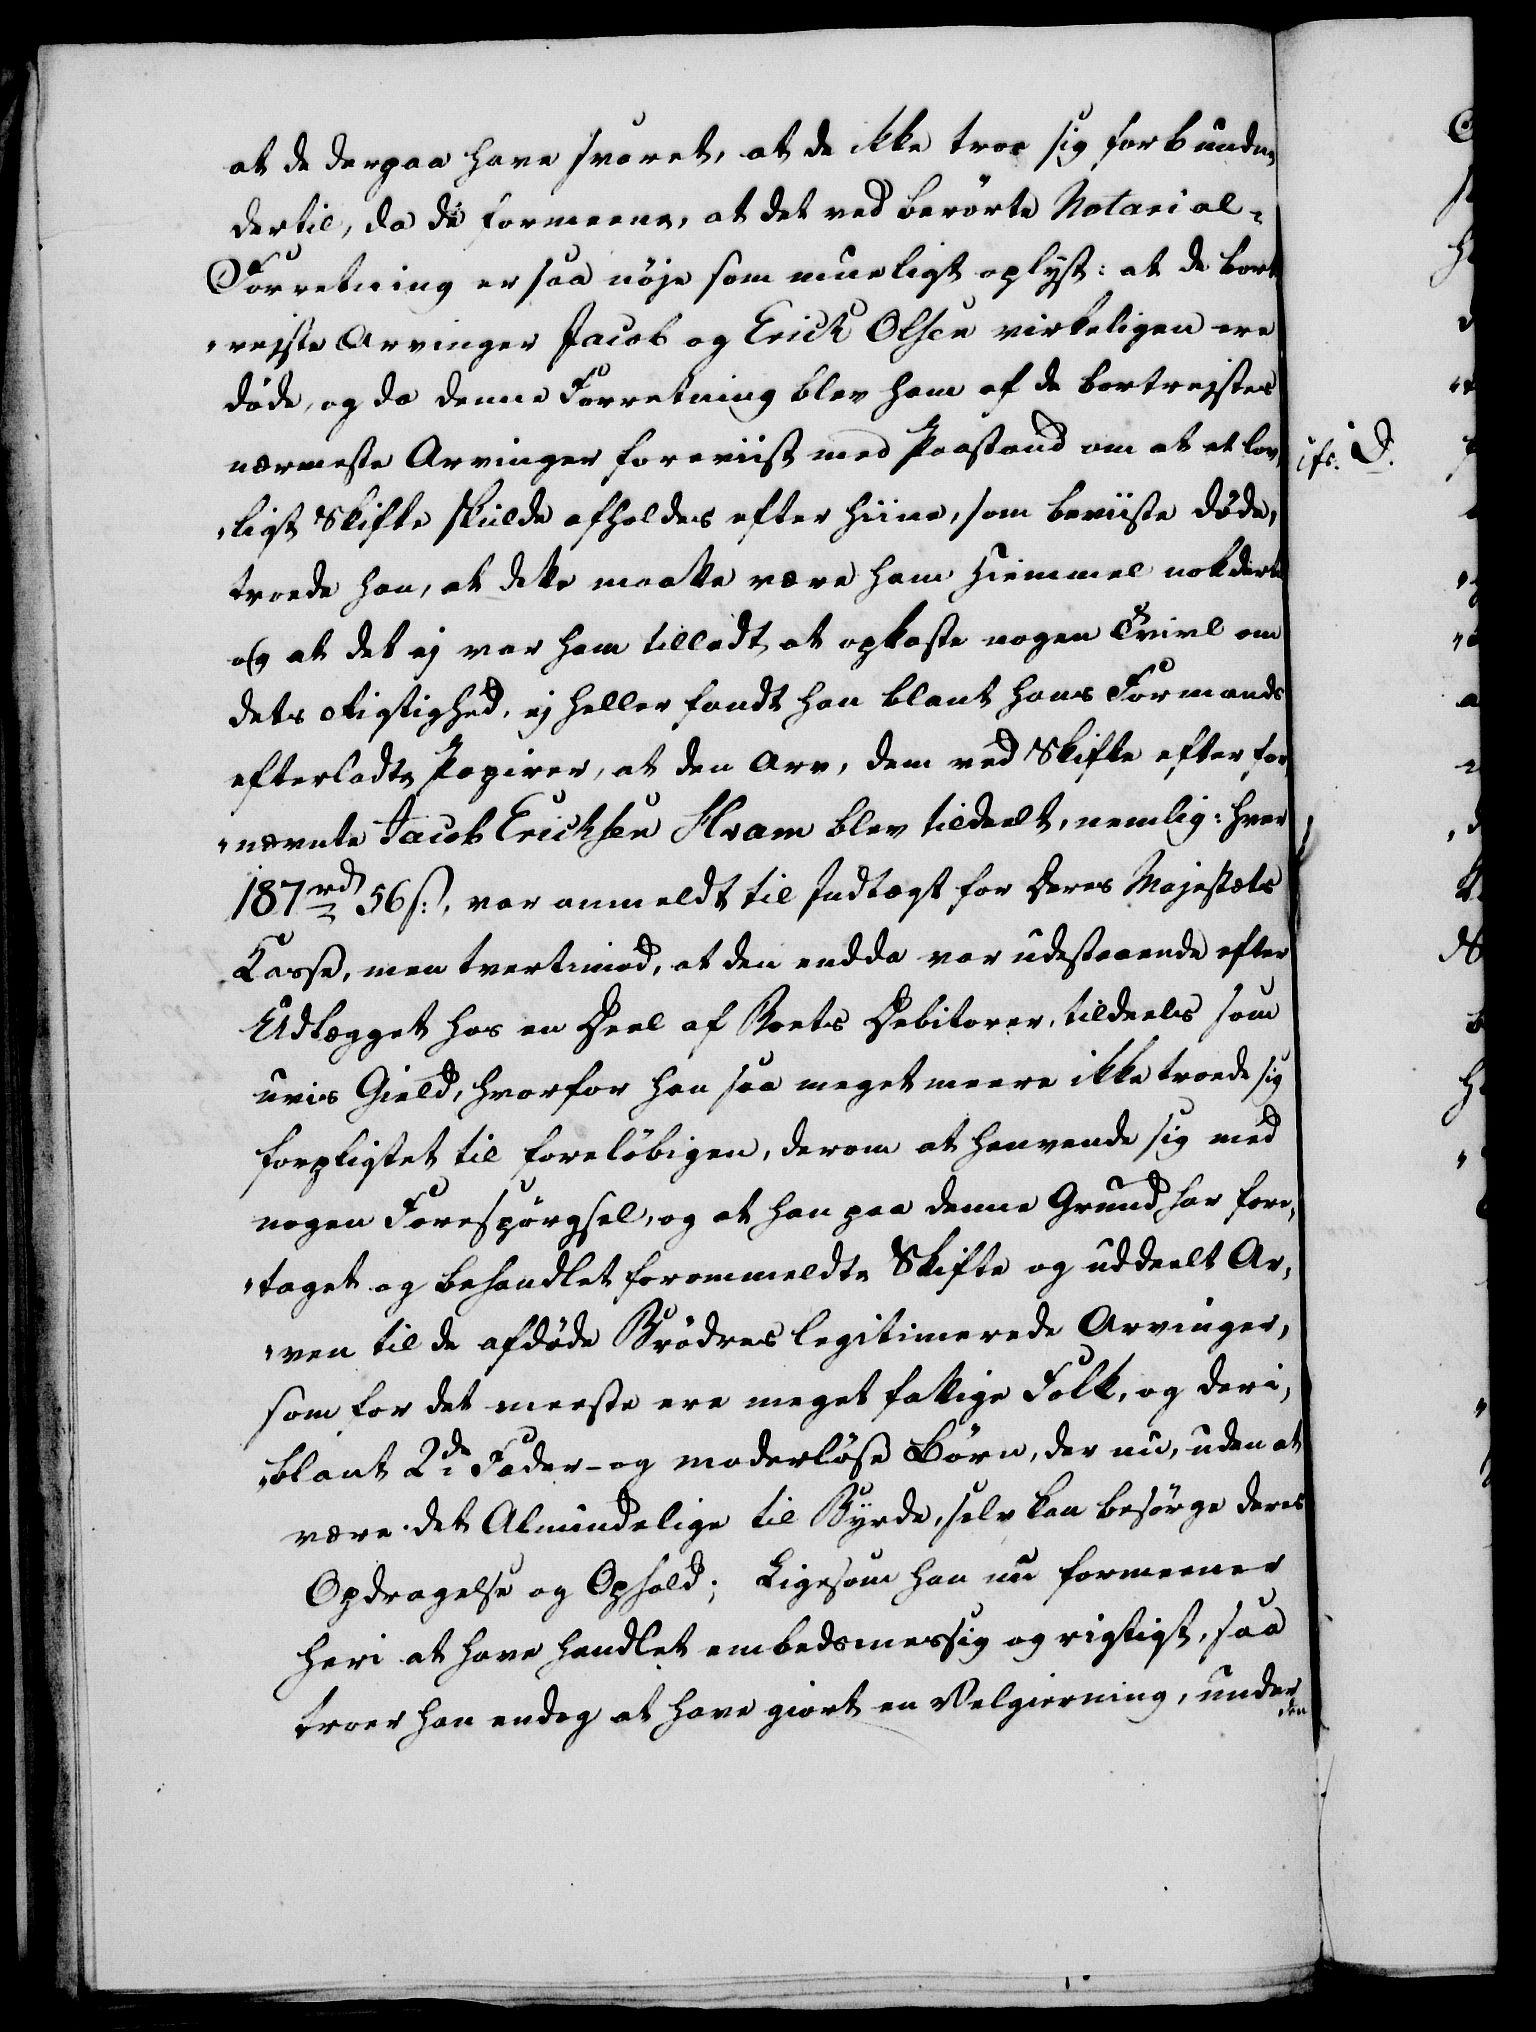 at de derpaa have svaret, at de ikke troe sig forbunden
dertil, da de formeene, at det ved berörte Notarial-
Forretning er saa nöje som mueligt oplyst: at de bort
rejste Arvinger Jacob og Erick Olsen virkeligen ere
döde, og da denne Forretning blev ham af de bortrejstes
nærmeste Arvinger foreviist med Paastand om at et lov,
ligt Skifte skulde afholdes efter hiine, som beviiste döde,
troede han, at dette maatte være ham Hiemmel nok dertil
og at det ej var ham tilladt at opkaste nogen Tvivl om
dets Rigtighed, ej heller fandt han blant hans Formands
efterladte Papirer, at den Arv, dem ved Skifte efter for,
nævnte Jacob Ericksen Hvam blev tildeelt, nemlig: hver
187 rd 56 s:, var anmeldt til Indtægt for Deres Majestæts
Casse, men tvertimod, at den endda var udestaaende efter
Udlægget hos en Deel af Boets Debitorer, tildeels som
uvis Gield, hvorfor han saa meget meere ikke troede sig
forpligtet til foreløbigen, derom at henvende sig med
nogen Forespörgsel, og at han paa denne Grund har fore,
taget og behandlet forommeldte Skifte og uddeelt Ar,
ven til de afdöde Brödres legitimerede Arvinger,
som for det meeste ere meget fattige Folk, og deri,
blant 2de Fader- og moderlöse Börn, der nu, uden at
være det Almindelige til Byrde, selv kan besörge deres
Opdragelse og Ophold; Ligesom han nu formeener
heri at have handlet embedsmessig og rigtigt, saa
troer han endog at have giort en Velgierning, under
den
cfr. D.